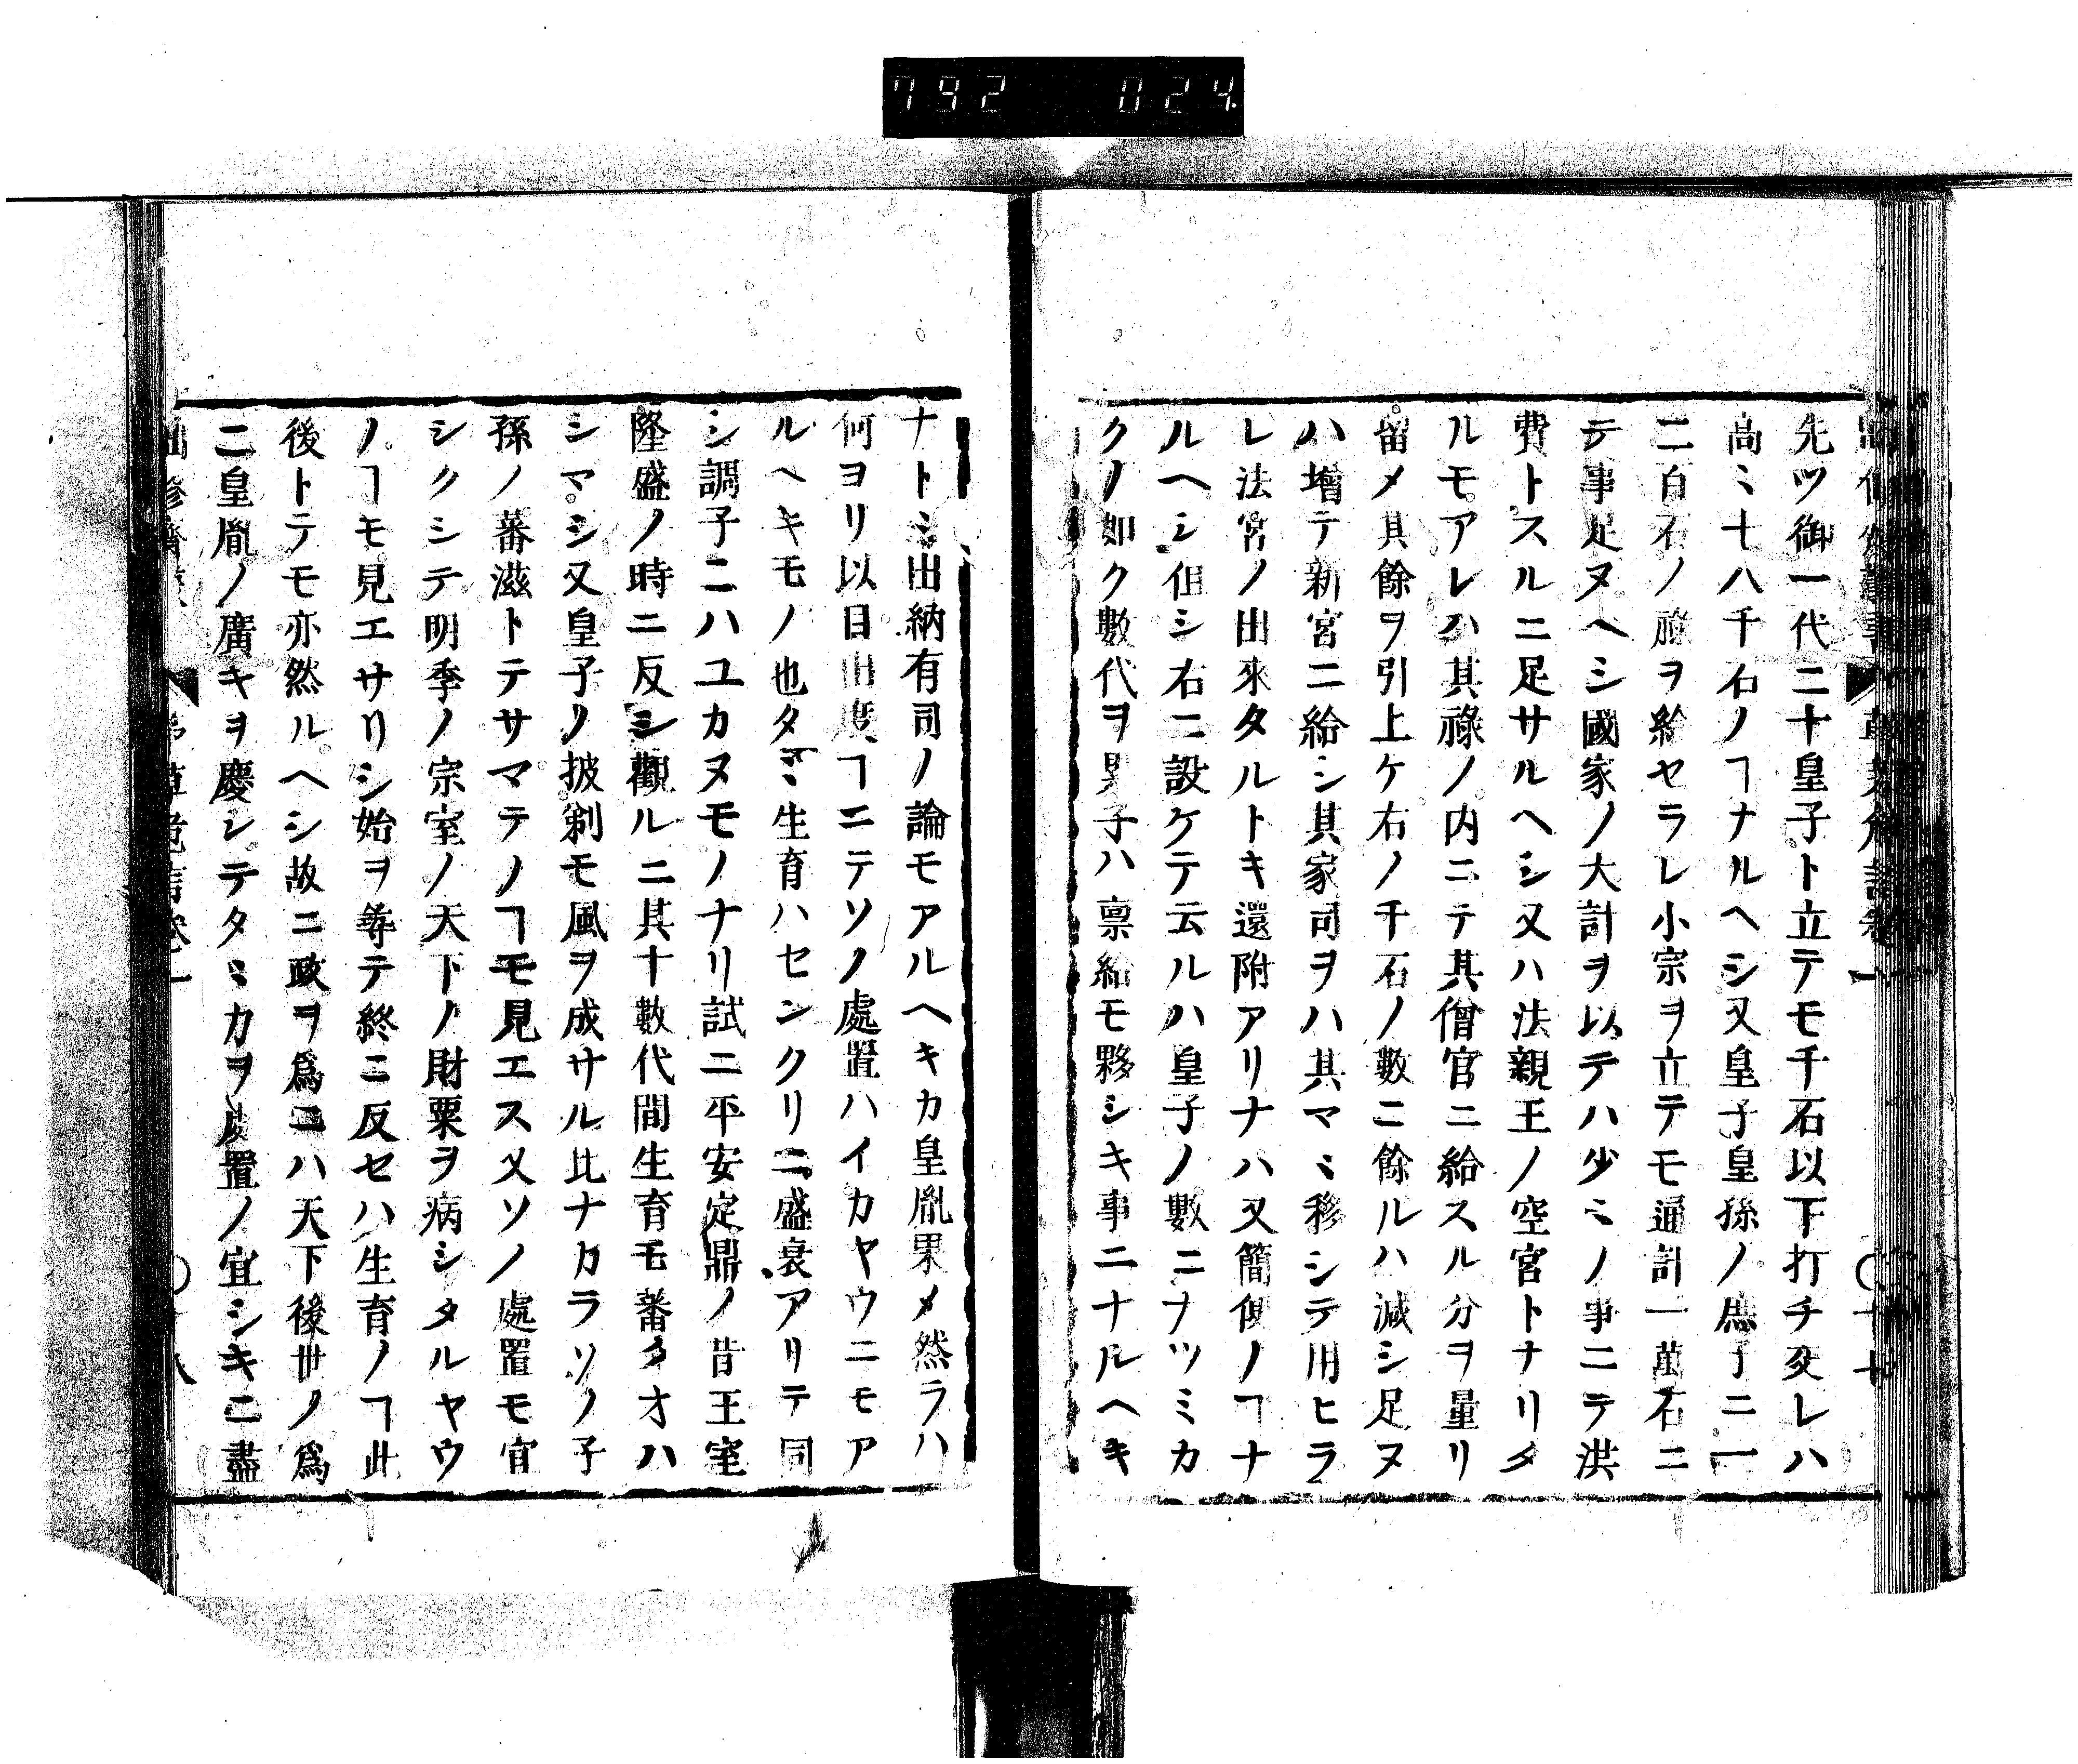 792 024
先ツ御一代ニ十皇子ト立テモ千石以下打チ交レハ
高ミ十八千石ノヿナルヘシ又皇子皇孫ノ庶子ニ一
二百石ノ祿ヲ給セラレ小宗ヲ立テモ通計一萬石ニ
テ事足ヌヘシ國家ノ大計ヲ以テハ少ミノ事ニテ洪
費トスルニ足サルヘシ又ハ法親王ノ空宮トナリタ
ルモアレハ其祿ノ内ニテ其僧官ニ給スル分ヲ量リ
留メ其餘ヲ引上ケ右ノ千石ノ數ニ餘ルハ減シ足ヌ
ハ増テ新宮ニ給シ其家司ヲハ其マミ移シテ用ヒラ
レ法宮ノ出來タルトキ還附アリナハ又簡便ノヿナ
ルヘシ但シ右ニ設ケテ云ルハ皇子ノ數ニナツミカ
クノ如ク數代ヲ累子ハ禀給モ夥シキ事ニナルヘキ
ナトミ出納有司ノ論モアルヘキカ皇胤果メ然ラハ
何ヨリ以目出度ヿニテソノ處置ハイカヤウニモア
ルヘキモノ也タミ生育ハセシクリニ盛衰アリテ同
シ調子ニハユカヌモノナリ試ニ平安定鼎ノ昔王室
隆盛ノ時ニ反シ觀ルニ其十數代間生育モ蕃タオハ
シマシ又皇子ノ披剃モ風ヲ成サル比ナカラソノ子
孫ノ蕃滋トテサマテノヿモ見エス又ソノ處置モ宜
シクシテ明季ノ宗室ノ天下ノ財粟ヲ病シタルヤウ
ノヿモ見エサリシ始ヲ尋テ終ニ反セハ生育ノヿ此
後トテモ亦然ルヘシ故ニ政ヲ爲ニハ天下後世ノ爲
ニ皇胤ノ廣キヲ慶シテタミカヲ處置ノ宜シキニ盡